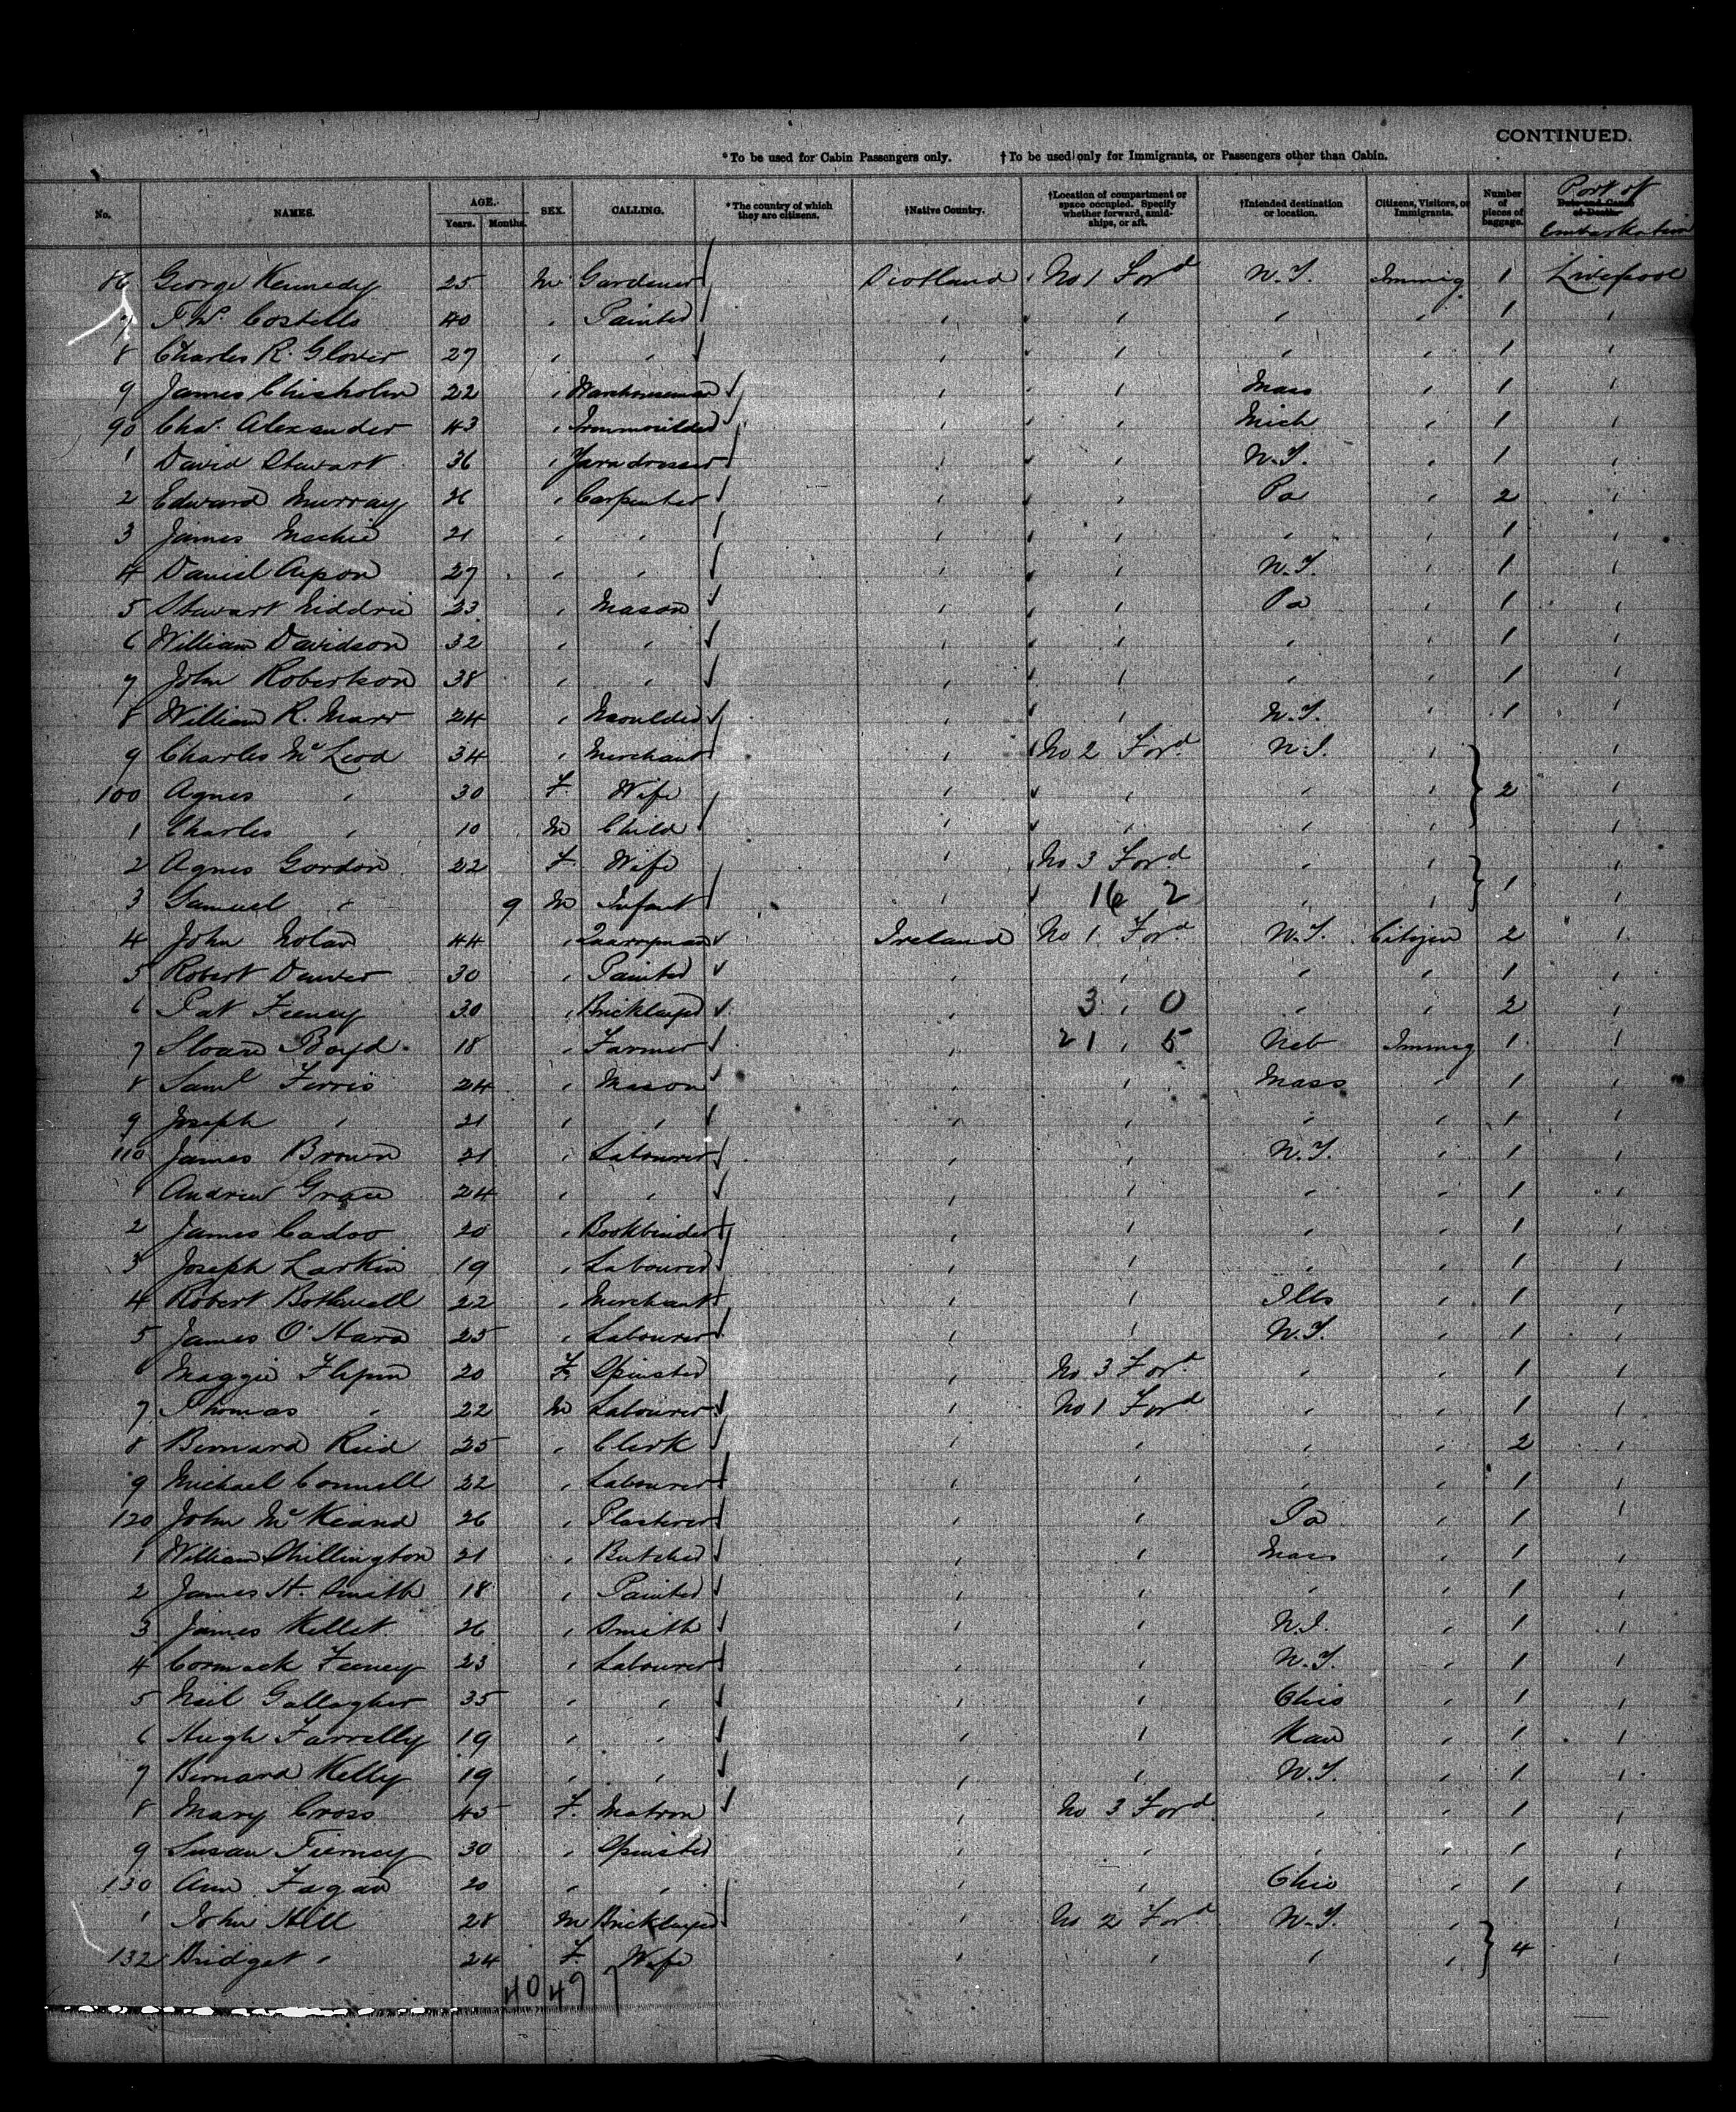 CONTINUED.
*To be used for Cabin Passengers only. †To be used only for Immigrants, or Passengers other than Cabin.
No. NAMES. AGE. Years. Months. SEX. CALLING. *The country of which they are citizens. †Native Country. †Location of compartment or space occupied. Specify whether forward, amidships, or aft. †Intended destination or location. Citizens, Visitors, or Immigrants. Number of pieces of baggage. Date and Cause of Death. Port of Embarkation
86 George Kennedy 25 M Gardener Scotland No 1 For^d N.Y. Immig 1 Liverpool
7 T W. Costello 40 " Painter " " " " 1 "
8 Charles R. Glover 27 " " " " " " 1 "
9 James Chisholm 22 " Warehouseman " " Mass " 1 "
90 Cha^s. Alexander 43 " Ironmoulder " " Mich " 1 "
1 David Stewart 36 " Yarn dresser " " N.Y. " 1 "
2 Edward Murray 26 " Carpenter " " Pa " 2 "
3 James Mechie 21 " " " " " " 1 "
4 Daniel 27 " " " " N.Y. " 1 "
5 Stewart Niddrie 23 " Mason " " Pa " 1 "
6 William Davidson 32 " " " " " " 1 "
7 John Robertson 38 " " " " " " 1 "
8 William R. Marr 24 " Moulder " " N.Y. " 1 "
9 Charles M^cLeod 34 " Merchant " No 2 For^d N.Y. " "
100 Agnes " 30 F. Wife " " " " 2 "
1 Charles " 10 M Child " " " " "
2 Agnes Gordon 22 F. Wife " No 3 For^d " " "
3 Samuel " 9 M Infant " 16 2 " " 1 "
4 John Nolan 44 " Quarryman Ireland No 1 For^d N.Y. Citizen 2 "
5 Robert 30 " Painter " " " " 1 "
6 Pat Feeney 30 " Bricklayer " 3 " 0 " " 2 "
7 Sloan Boyd 18 " Farmer " 21 " 5 Neb Immig 1 "
8 Sam^l Ferris 24 " Mason " " Mass " 1 "
9 Joseph " 21 " " " " " " 1 "
110 James Brown 21 " Labourer " " N.Y. " 1 "
1 Andrew Grace 24 " " " " " " 1 "
2 James Cadoo 20 " Bookbinder " " " " 1 "
3 Joseph Larkin 19 " Labourer " " " " 1 "
4 Robert Bothwell 22 " Merchant " " Ills " 1 "
5 James O'Hara 25 " Labourer " " N.Y. " 1 "
6 Maggie 20 F. Spinster " No 3 For^d " " 1 "
7 Thomas " 22 M Labourer " No 1 For^d " " 1 "
8 Bernard Reid 25 " Clerk " " " " 2 "
9 Michael Connell 22 " Labourer " " " " 1 "
120 John M^cKeand 26 " Plasterer " " Pa " 1 "
1 William Chillington 21 " Butcher " " Mass " 1 "
2 James H. Smith 18 " Painter " " " " 1 "
3 James Kellet 26 " Smith " " N.Y. " 1 "
4 Cormack Feeney 23 " Labourer " " N.Y. " 1 "
5 Neil Gallagher 35 " " " " Ohio " 1 "
6 Hugh Farrelly 19 " " " " Kan " 1 "
7 Bernard Kelly 19 " " " " N.Y. " 1 "
8 Mary Cross 45 F. Matron " No 3 For^d " " 1 "
9 Susan Tierney 30 " Spinster " " " " 1 "
130 Ann Fagan 20 " " " " Ohio " 1 "
1 John Hill 28 M Bricklayer " No 2 For^d N.Y. " "
132 Bridget " 24 F. Wife " " " " 4 "
40 47